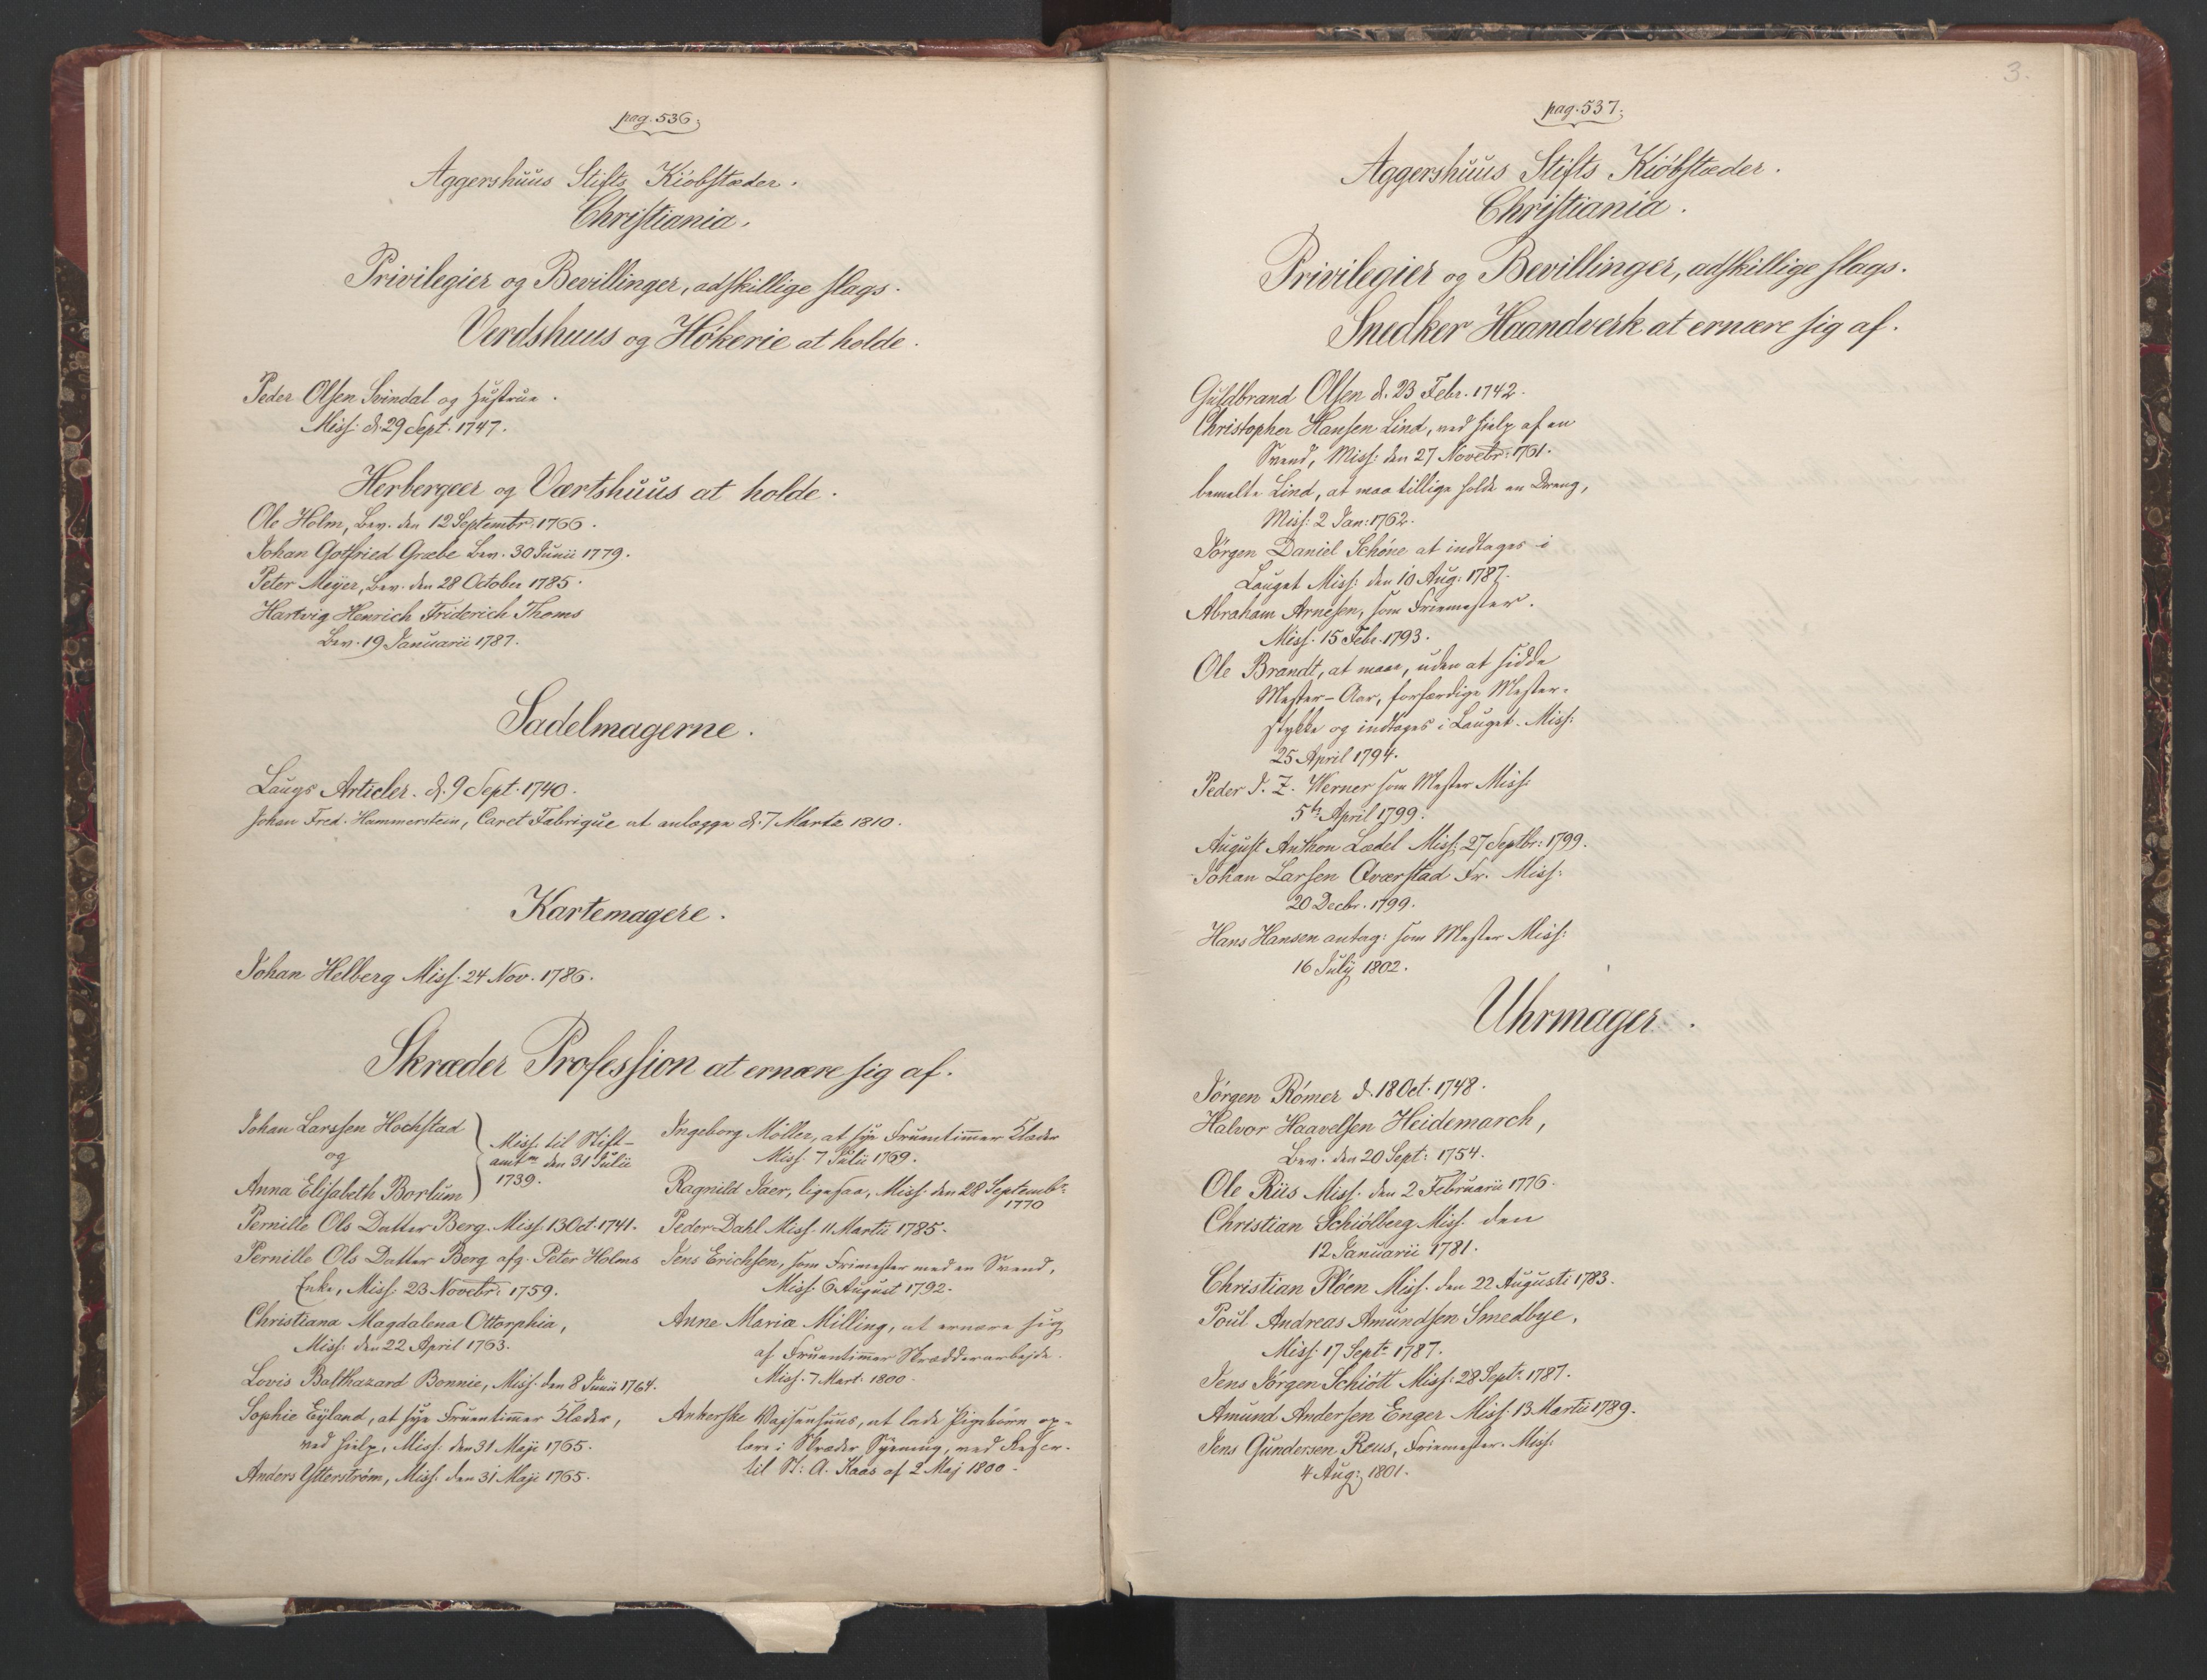 pag. 536.
Aggershuus Stifts Kiøbstæder.
Christiania.
Privilegier og Bevillinger, adskillige slags.
Verdshuus og Hökerie at holde.
Peder Olsen Svindal og Hustrue.
Miss: d. 29 Sept. 1747.
Herbergeer og Værtshuus at holde.
Ole Holm, Bev. den 12 Septembr. 1766.
Johan Gotfried Græbe Bev. 30 Junii 1779.
Peter Meyer, Bev. den 28 October 1785.
Hartvig Henrich Friderich Thoms
Bev. 19 Januarii 1787.
Sadelmagerne.
Laugs Articler. d. 9 Sept. 1740.
Johan Fred. Hammerstein, Caret Fabrique at anlægge d. 7 Martz 1810.
Kartemagere.
Johan Helberg Miss. 24 Nov. 1786.
Skræder Profession at ernære sig af.
Johan Larssen Hochstad
og
Anna Elisabeth Borlum
Miss. til Stift-
amtm den 31 Julii
1739.
Pernille Ols Datter Berg. Miss. 13 Oct. 1741.
Pernille Ols Datter Berg afg. Peter Holms
Enke, Miss: 23 Novebr: 1759.
Christiana Magdalena Ottorphia,
Miss: den 22 April 1763.
Lovis Balthazard Bonnie, Miss. den 8 Junii 1764.
Sophie Eyland, at sye Fruentimer Klæder,
ved hielp, Miss: den 31 Maji 1765.
Anders Ytterström, Miss. den 31 Maji 1765.
Ingeborg Möller, at sye Fruentimer Klæder
Miss. 7 Julii 1769.
Ragnild Jaer, ligesaa, Miss. den 28 Septembr.
1770
Peder Dahl Miss. 11 Martii 1785.
Jens Erichsen, som Frimester med en Svend,
Miss. 6 August 1792.
Anne Maria Milling, at ernære sig
af Fruentimer Skrædderarbejde.
Miss. 7 Mart. 1800.
Ankerske Waysenhuus, at lade Pigebørn op-
lære i Skræder Syening, ved Rescr.
til St: A. Kaas af 2 Maj 1800.
3.
pag. 537.
Aggershuus Stifts Kiøbstæder.
Christiania.
Privilegier og Bevillinger, adskillige slags.
Snedker Haandverk at ernære sig af.
Guldbrand Olsen d. 23 Febr. 1742.
Christopher Hansen Lind, ved hielp af en
Svend, Miss: den 27 Novebr: 1761.
bemelte Lind, at maa tillige holde en Dreng,
Miss: 2 Jan: 1762.
Jörgen Daniel Schöne at indtages i
Lauget Miss: den 10 Aug: 1787.
Abraham Arnesen, som Friemester.
Miss. 15 Febr. 1793.
Ole Brandt, at maae, uden at sidde
Mester-Aar, forfærdige Mester-
stykke og indtages i Lauget. Miss:
25 April 1794.
Peder J. Z. Werner som Mester Miss:
5te April 1799.
August Anthon Lædel Miss: 27 Septbr: 1799.
Johan Larsen Qværstad Fr. Miss:
20 Decbr. 1799.
Hans Hansen antag: som Mester Miss:
16 July 1802.
Uhrmager.
Jörgen Römer d. 18 Oct. 1748.
Halvor Haavelsen Heidemarch,
Bev. den 20 Sept: 1754.
Ole Riis Miss. den 2 Februarii 1776.
Christian Schiölberg Miss. den
12 Januarii 1781.
Christian Plöen Miss. den 22 Augusti 1783.
Poul Andreas Amundsen Smedbye,
Miss. 17 Septr 1787.
Jens Jörgen Schiött Miss: 28 Septr 1787.
Amund Andersen Enger Miss. 13 Martii 1789.
Jens Gundersen Reus, Friemester. Miss:
4 Aug: 1801.